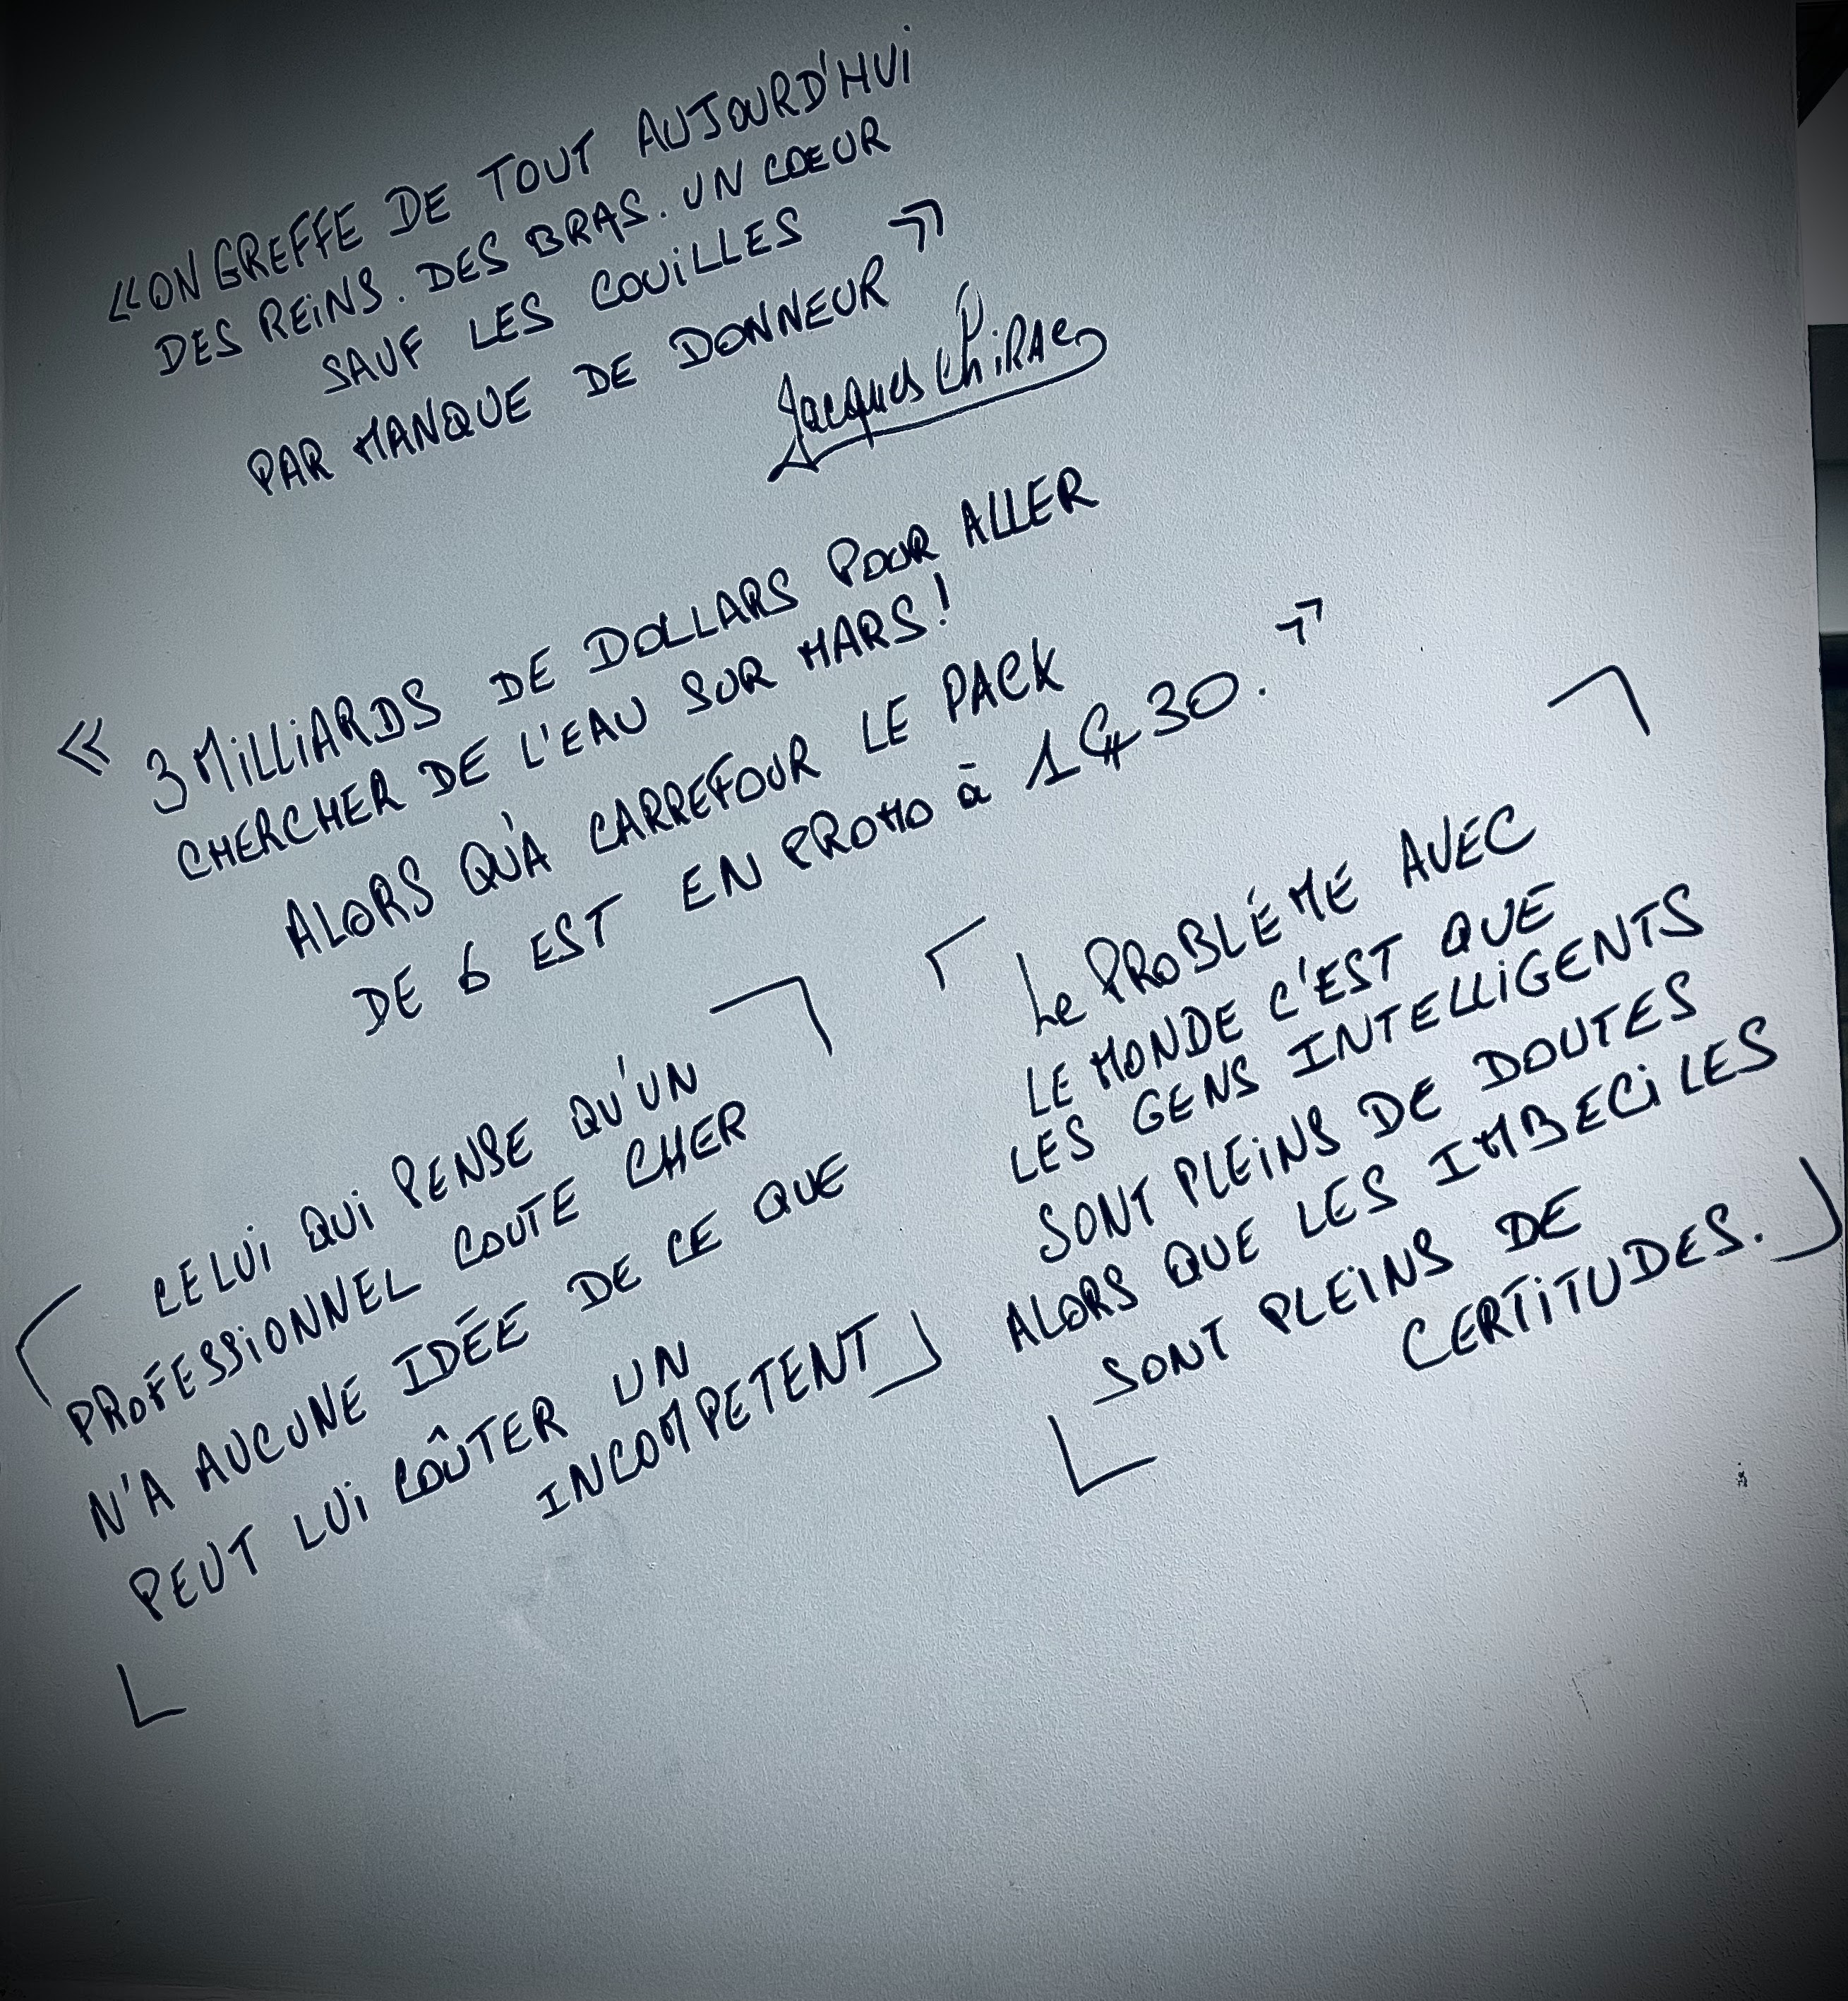 «ON GREFFE DE TOUT AUJOURD'HUI
DES REINS. DES BRAS. UN COEUR
SAUF LES COUILLES
PAR MANQUE DE DONNEUR »
Jacques CHiRAC
« 3 MILLIARDS DE DOLLARS POUR ALLER
CHERCHER DE L'EAU SUR MARS!
ALORS QU'À CARREFOUR LE PACK
DE 6 EST EN PROMO à 1€30. »
CELUI QUI PENSE QU'UN
PROFESSIONNEL COUTE CHER
N'A AUCUNE IDÉE DE CE QUE
PEUT LUI COÛTER UN
INCOMPETENT
Le PROBLÉME AVEC
LE MONDE C'EST QUE
LES GENS INTELLIGENTS
SONT PLEINS DE DOUTES
ALORS QUE LES IMBECILES
SONT PLEINS DE
CERTITUDES.